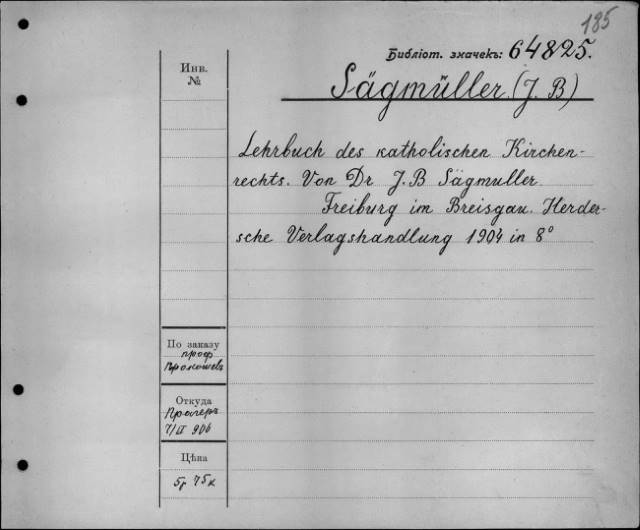 185
Библіот. значекъ: 64825.
Sägmüller (J. B)
Инв.
№
Lehrbuch des katholischen Kirchen-
rechts. Von Dr J. B Sägmuller
Freiburg im Breisgau. Herder-
sche Verlagshandlung 1904 in 8°
По заказу
проф
Прокошев
Откуда
Прагеръ
7/II 906
Цѣна
5р 75к